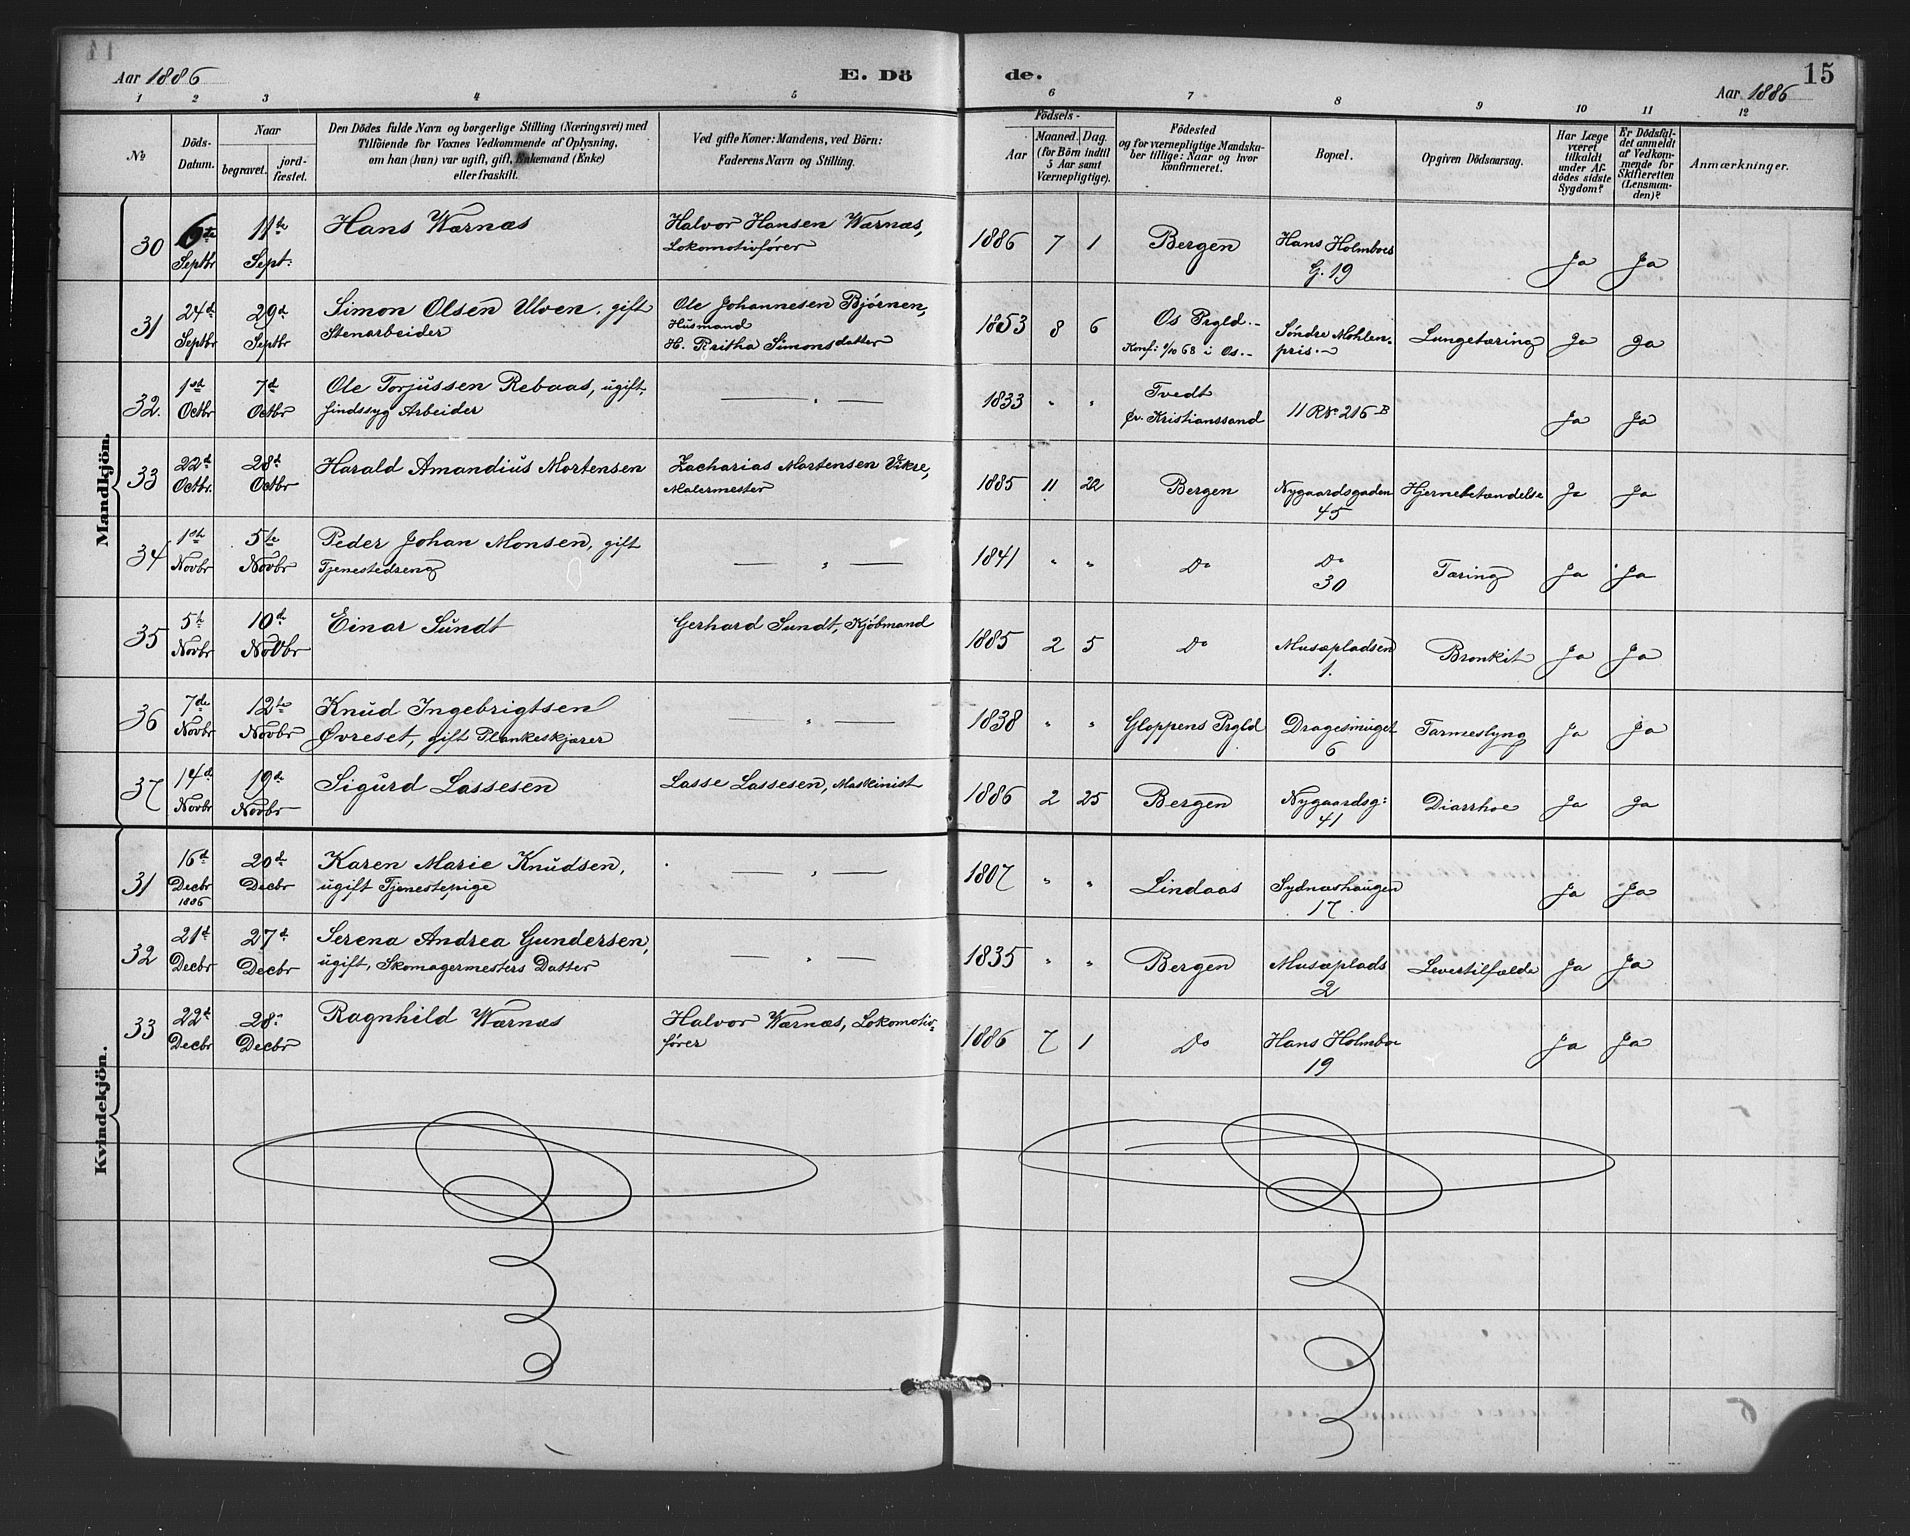 Aar 1886
E. Dö
de.
15
Aar 1886
1 2 3 4 5 6 7 8 9 10 11 12
No
Döds-
Datum.
Naar
begravet.
jord-
fæstet.
Den Dödes fulde Navn og borgerlige Stilling (Næringsvei) med
Tilföiende for Voxnes Vedkommende af Oplysning,
om han (hun) var ugift, gift, Enkemand (Enke)
eller fraskilt.
Ved gifte Koner: Mandens, ved Börn:
Faderens Navn og Stilling.
Födsels-
Aar
Maaned.
Dag.
(for Börn indtil
5 Aar samt
Værnepligtige).
Födested
og for værnepligtige Mandska-
ber tillige: Naar og hvor
konfirmeret.
Bopæl.
Opgiven Dödsaarsag.
Har Læge
været
tilkaldt
under Af-
dödes sidste
Sygdom?
Er Dödsfal-
det anmeldt
af Vedkom-
mende for
Skifteretten
(Lensman-
den)?
Anmærkninger.
Mandkjön.
30 6te Septbr 11te Sept: Hans Wærnæs Halvor Hansen Wærnæs,
Lokomotivfører
1886 7 1 Bergen Hans Holmboes
G. 19 Ja Ja
31 24d Septbr 29d Septbr Simon Olsen Ulven, gift
Stenarbeider
Ole Johannesen Bjørnen,
Husmand
H. Britha Simonsdatter
1853 8 6 Os Prgld.
Konf: 4/10 68 i Os.
Søndre Møhlen-
pris. Lungetæring Ja Ja
32. 1st Octbr 7d Octbr Ole Torjussen Rebaas, ugift,
sindssyg Arbeider
— " —
1833 " " Tvedt
Øv. Kristianssand
11 RNo 216 B Ja Ja
33 22d Octbr. 28d Octbr Harald Amandius Mortensen
Zacharias Mortensen Vikre,
Malermester
1885 11 22 Bergen Nygaardsgaden
45 Hjernebetændelse Ja Ja
34 1ste Novbr 5te Novbr Peder Johan Monsen, gift
Tjenestedreng
— " —
1841 " " Do Do
30 Tæring Ja Ja
35 5te Novbr 10d Novbr Einar Sundt Gerhard Sundt, Kjøbmand
1885 2 5 Do Musæpladsen
1. Bronkit Ja Ja
36 7de Novbr 12te Novbr Knud Ingebrigtsen
Øvreset, gift Plankeskjærer
— " —
1838 " " Gloppens Prgld Dragesmuget
6 Tarmeslyng Ja Ja
37 14d Novbr 19d Novbr Sigurd Lassesen Lasse Lassesen, Maskinist
1886 2 25 Bergen Nygaardsg:
41 Diarrhoe Ja Ja
Kvindekjön.
31 16d Decbr 1886 20d Decbr Karen Marie Knudsen,
ugift Tjenestepige
— " —
1807 " " Lindaas Sydnæshaugen
17. Ja Ja
32 21d Decbr 27d Decbr Serena Andrea Gundersen,
ugift, Skomagermesters Datter
— " —
1835 " " Bergen Musæplads
2 Levertilfælde Ja Ja
33 22d Decbr 28d Decbr Ragnhild Wærnæs Halvor Wærnæs, Lokomotiv-
fører
1886 7 1 Do Hans Holmboe
19 Ja Ja